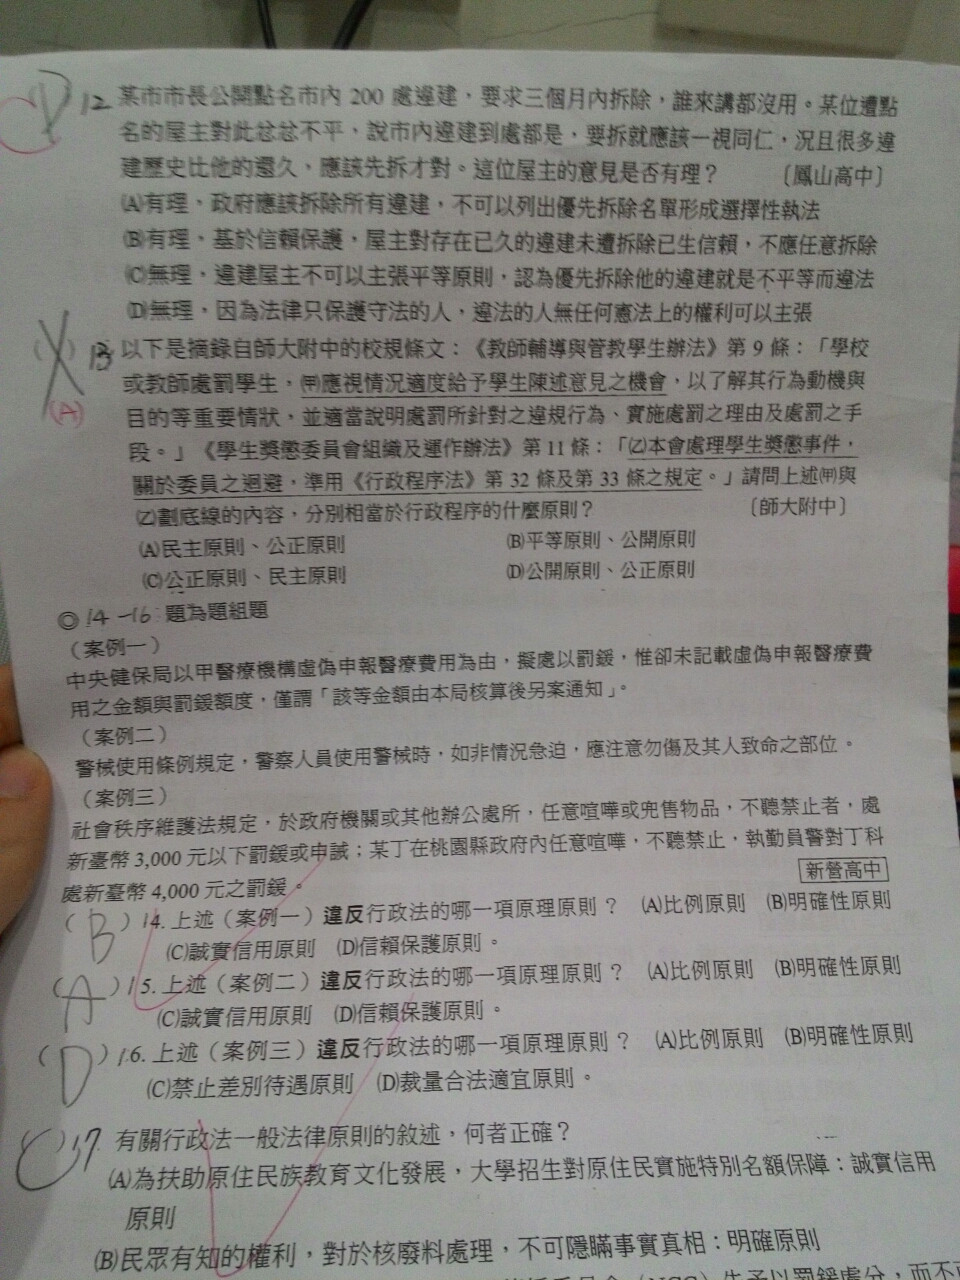 D 12 某市市長公開點名市內 200 處違建，要求三個月內拆除，誰來講都沒用。某位遭點
名的屋主對此忿忿不平，說市內違建到處都是，要拆就應該一視同仁，況且很多違
建歷史比他的還久，應該先拆才對。這位屋主的意見是否有理？〔鳳山高中〕
(A)有理，政府應該拆除所有違建，不可以列出優先拆除名單形成選擇性執法
(B)有理，基於信賴保護，屋主對存在已久的違建未遭拆除已生信賴，不應任意拆除
(C)無理，違建屋主不可以主張平等原則，認為優先拆除他的違建就是不平等而違法
(D)無理，因為法律只保護守法的人，違法的人無任何憲法上的權利可以主張
( ) 13 以下是摘錄自師大附中的校規條文：《教師輔導與管教學生辦法》第 9 條：「學校
(A) 或教師處罰學生，㈙應視情況適度給予學生陳述意見之機會，以了解其行為動機與
目的等重要情狀，並適當說明處罰所針對之違規行為、實施處罰之理由及處罰之手
段。」《學生獎懲委員會組織及運作辦法》第 11 條：「(乙)本會處理學生獎懲事件，
關於委員之迴避，準用《行政程序法》第 32 條及第 33 條之規定。」請問上述(甲)與
(乙)劃底線的內容，分別相當於行政程序的什麼原則？〔師大附中〕
(A)民主原則、公正原則 (B)平等原則、公開原則
(C)公正原則、民主原則 (D)公開原則、公正原則
◎ 14-16 題為題組題
（案例一）
中央健保局以甲醫療機構虛偽申報醫療費用為由，擬處以罰鍰，惟卻未記載虛偽申報醫療費
用之金額與罰鍰額度，僅謂「該等金額由本局核算後另案通知」。
（案例二）
警械使用條例規定，警察人員使用警械時，如非情況急迫，應注意勿傷及其人致命之部位。
（案例三）
社會秩序維護法規定，於政府機關或其他辦公處所，任意喧嘩或兜售物品，不聽禁止者，處
新臺幣 3,000 元以下罰鍰或申誡；某丁在桃園縣政府內任意喧嘩，不聽禁止，執勤員警對丁科
處新臺幣 4,000 元之罰鍰。 新營高中
( B ) 14. 上述（案例一）違反行政法的哪一項原理原則？ (A)比例原則 (B)明確性原則
(C)誠實信用原則 (D)信賴保護原則。
( A ) 15. 上述（案例二）違反行政法的哪一項原理原則？ (A)比例原則 (B)明確性原則
(C)誠實信用原則 (D)信賴保護原則。
( D ) 16. 上述（案例三）違反行政法的哪一項原理原則？ (A)比例原則 (B)明確性原則
(C)禁止差別待遇原則 (D)裁量合法適宜原則。
( C ) 17. 有關行政法一般法律原則的敘述，何者正確？
(A)為扶助原住民族教育文化發展，大學招生對原住民實施特別名額保障：誠實信用
原則
(B)民眾有知的權利，對於核廢料處理，不可隱瞞事實真相：明確原則